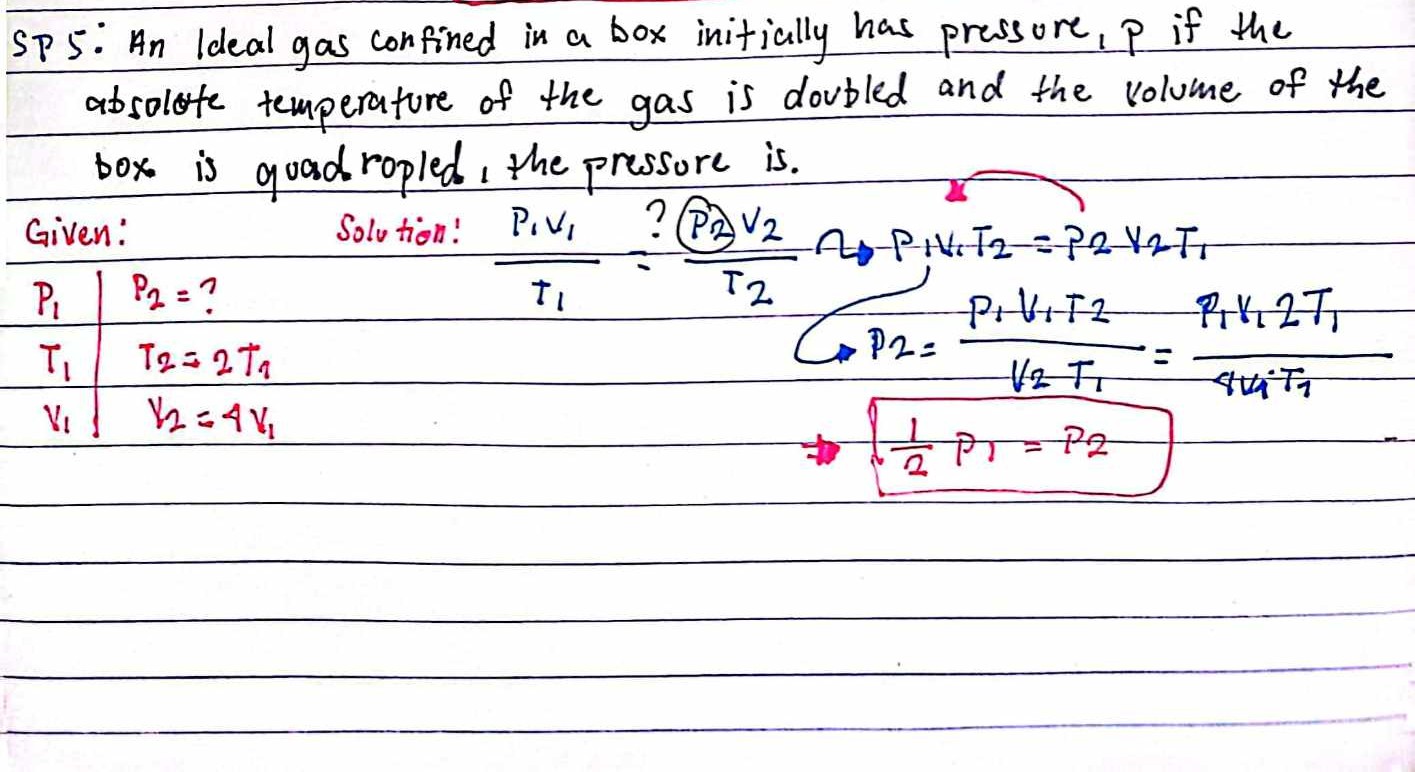 SP5: An Ideal gas confined in a box initially has pressure, p if the
absolute temperature of the gas is doubled and the volume of the
box is quadropled, the pressure is.
Given: Solution: P₁V₁/T₁ = ? P2V2/T2 → P₁V₁T2 = P2V2T₁
P₁ | P₂ = ?
T₁ | T2 = 2T₁
V₁ | V2 = 4V₁
P2 = P₁V₁T2/V2T₁ = P₁V₁2T₁/4V₁T₁
⇒ 1/2 P₁ = P2